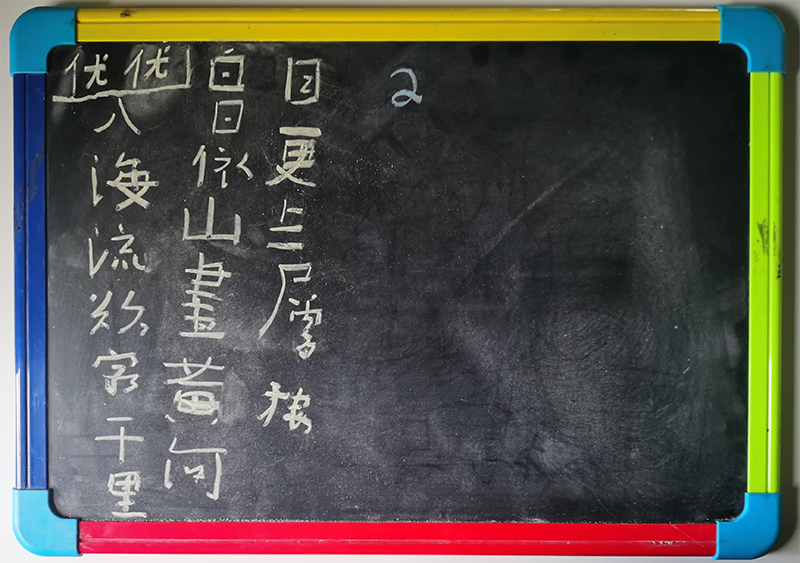 优优
白日依山畫黃河
入海流欲穷千里
目更上一層楼
2